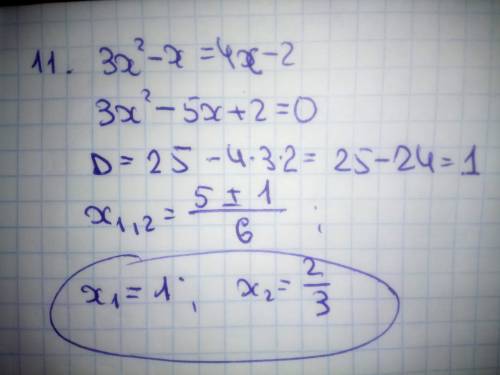 11. 3x²-x=4x-2
3x²-5x+2=0
D=25-4·3·2=25-24=1
x₁,₂=(5±1)/6;
x₁=1; x₂=2/3